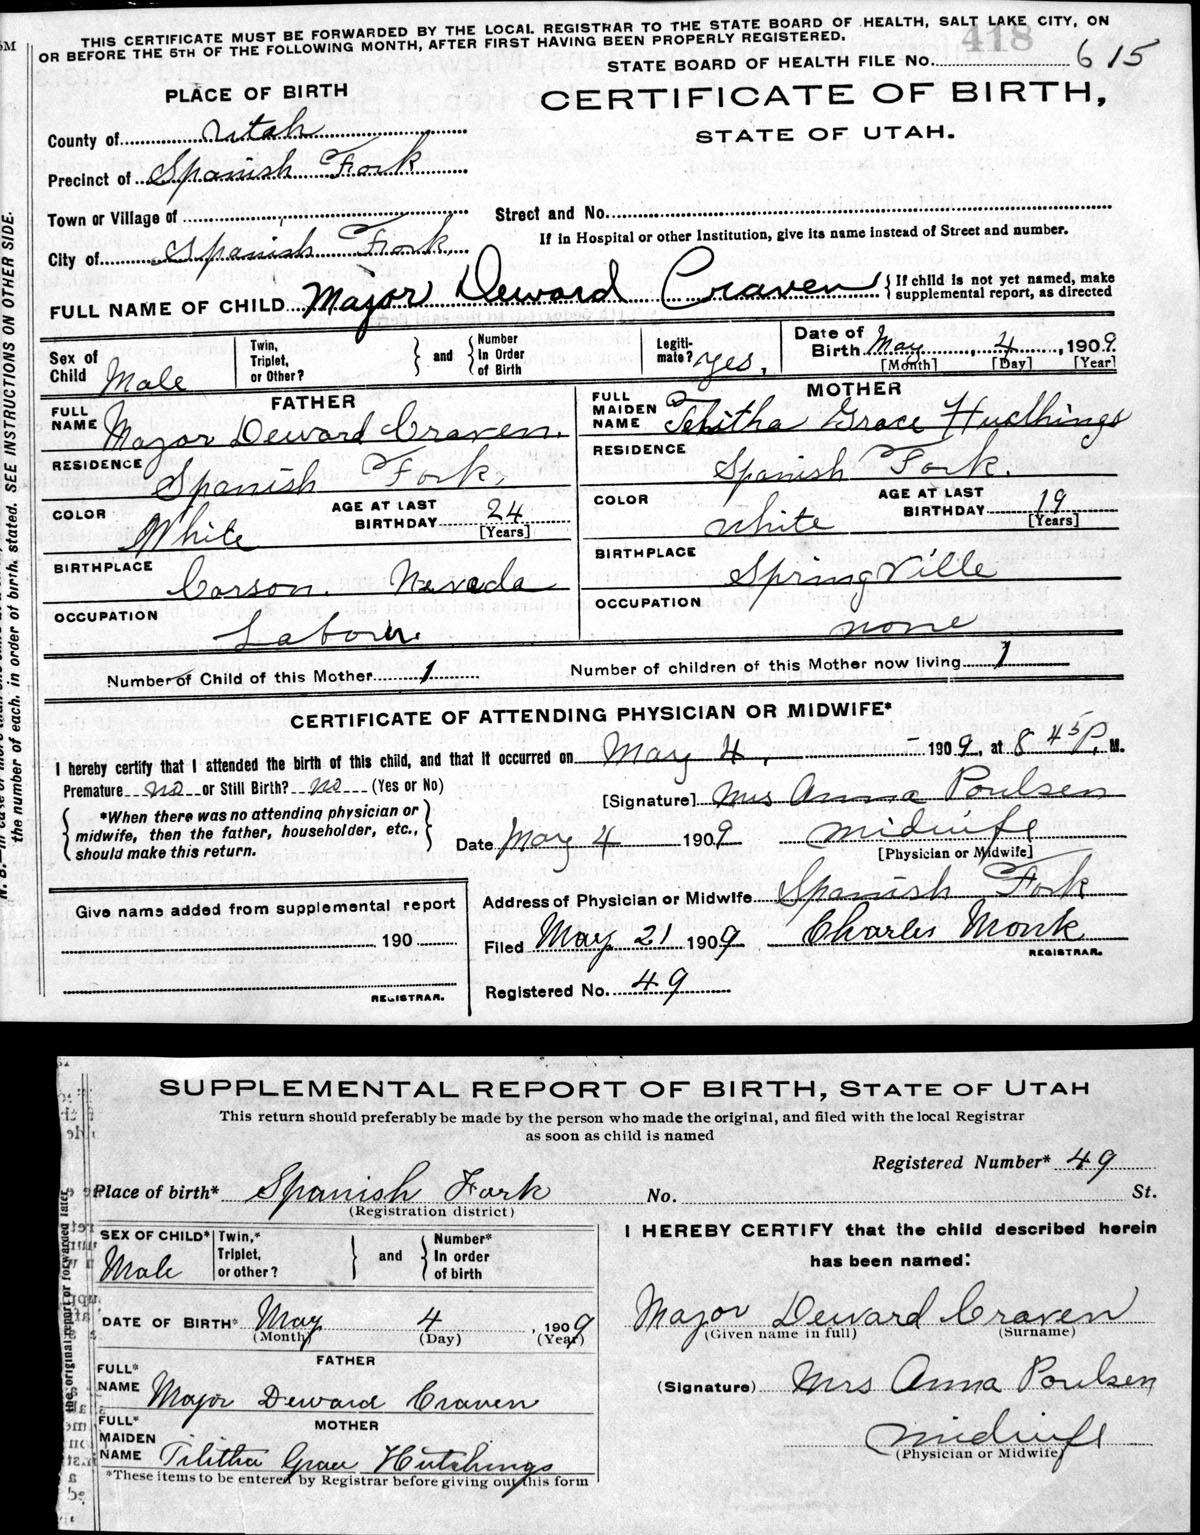 THIS CERTIFICATE MUST BE FORWARDED BY THE LOCAL REGISTRAR TO THE STATE BOARD OF HEALTH, SALT LAKE CITY, ON
OR BEFORE THE 5TH OF THE FOLLOWING MONTH, AFTER FIRST HAVING BEEN PROPERLY REGISTERED.
418
STATE BOARD OF HEALTH FILE No. 615
PLACE OF BIRTH
CERTIFICATE OF BIRTH,
STATE OF UTAH.
County of Utah
Precinct of Spanish Fork
Town or Village of
Street and No.
City of Spanish Fork
If in Hospital or other Institution, give its name instead of Street and number.
FULL NAME OF CHILD Major Deward Craven { If child is not yet named, make
supplemental report, as directed
Sex of Child Male
Twin, Triplet, or Other? } and { Number In Order of Birth
Legiti-mate? Yes.
Date of Birth May, 4, 1909.
[Month] [Day] [Year]
FATHER
FULL NAME Major Deward Craven.
RESIDENCE Spanish Fork,
COLOR White
AGE AT LAST BIRTHDAY 24
[Years]
BIRTHPLACE Carson. Nevada
OCCUPATION Labour.
MOTHER
FULL MAIDEN NAME Tebitha Grace Hucthings
RESIDENCE Spanish Fork.
COLOR white
AGE AT LAST BIRTHDAY 19
[Years]
BIRTHPLACE SpringVille
OCCUPATION none
Number of Child of this Mother 1
Number of children of this Mother now living 1
CERTIFICATE OF ATTENDING PHYSICIAN OR MIDWIFE*
I hereby certify that I attended the birth of this child, and that it occurred on May 4, - 1909, at 8 45 P. M.
Premature no or Still Birth? no (Yes or No)
[Signature] Mrs Anna Poulsen
{ *When there was no attending physician or
midwife, then the father, householder, etc.,
should make this return. }
Date May 4 1909
midwife
[Physician or Midwife]
Address of Physician or Midwife Spanish Fork
Give name added from supplemental report
, 190
REGISTRAR.
Filed May 21 1909 Charles Monk
REGISTRAR.
Registered No. 49
SEE INSTRUCTIONS ON OTHER SIDE.
the number of each, in order of birth, stated.
SUPPLEMENTAL REPORT OF BIRTH, STATE OF UTAH
This return should preferably be made by the person who made the original, and filed with the local Registrar
as soon as child is named
Registered Number* 49
Place of birth* Spanish Fork No. St.
(Registration district)
SEX OF CHILD* Male
Twin,* Triplet, or other? } and { Number* In order of birth
DATE OF BIRTH* May 4, 1909
(Month) (Day) (Year)
FATHER
FULL* NAME Major Deward Craven
MOTHER
FULL* MAIDEN NAME Tilitha Grace Hutchings
*These items to be entered by Registrar before giving out this form
I HEREBY CERTIFY that the child described herein
has been named:
Major Deward Craven
(Given name in full) (Surname)
(Signature) Mrs Anna Poulsen
midwife
(Physician or Midwife)
the original report or forwarded later